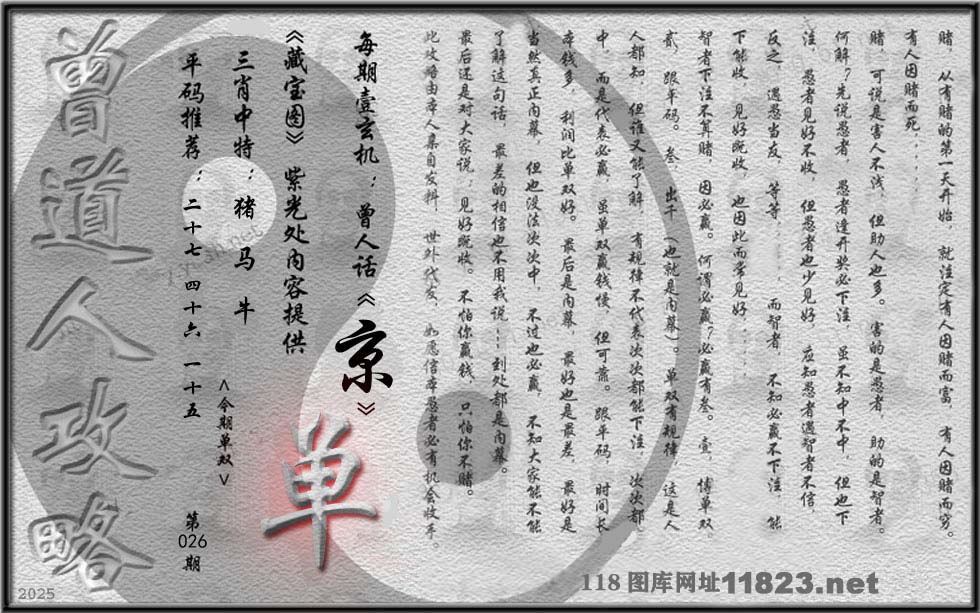 赌，从有赌的第一天开始，就注定有人因赌而富，有人因赌而穷。
有人因赌而死．．．．．
赌，可说是害人不浅，但助人也多。害的是愚者，助的是智者。
何解？先说愚者，愚者逢开奖必下注，虽不知中不中，但也下
注，愚者见好不收，但愚者也少见好，应知愚者遇智者不信，
反之，遇愁当友，等等．．．．．而智者，不知必赢不下注，能
下能收，见好既收，也因此而常见好．．．．
智者下注不算赌，因必赢。何谓必赢？必赢有叁。壹，博单双，
贰，跟平码。叁，出千（也就是内幕）。单双有规律，这是人
人都知，但谁又能了解，有规律不代表次次都能下注，次次都
中，而是代表必赢，虽单双赢钱慢，但可靠。跟平码，时间长，
本钱多，利润比单双好。最后是内幕，最好也是最差，最好是
当然真正内幕，但也没法次次中，不过也必赢，不知大家能不能
了解这句话，最差的相信也不用我说┅到处都是内幕。
最后还是对大家说；见好既收。不怕你赢钱，只怕你不赌。
此攻略由本人集自发料，世外代友，如愿信本愚者必有机会收手。
每期壹玄机：曾人话《京》
《藏宝图》紫光处内容提供
三肖中特：猪 马 牛
平码推荐：二十七 四十六 一十五
<今期单双>
单
第026期
曾道人攻略
118 图库网址11823.net
2025